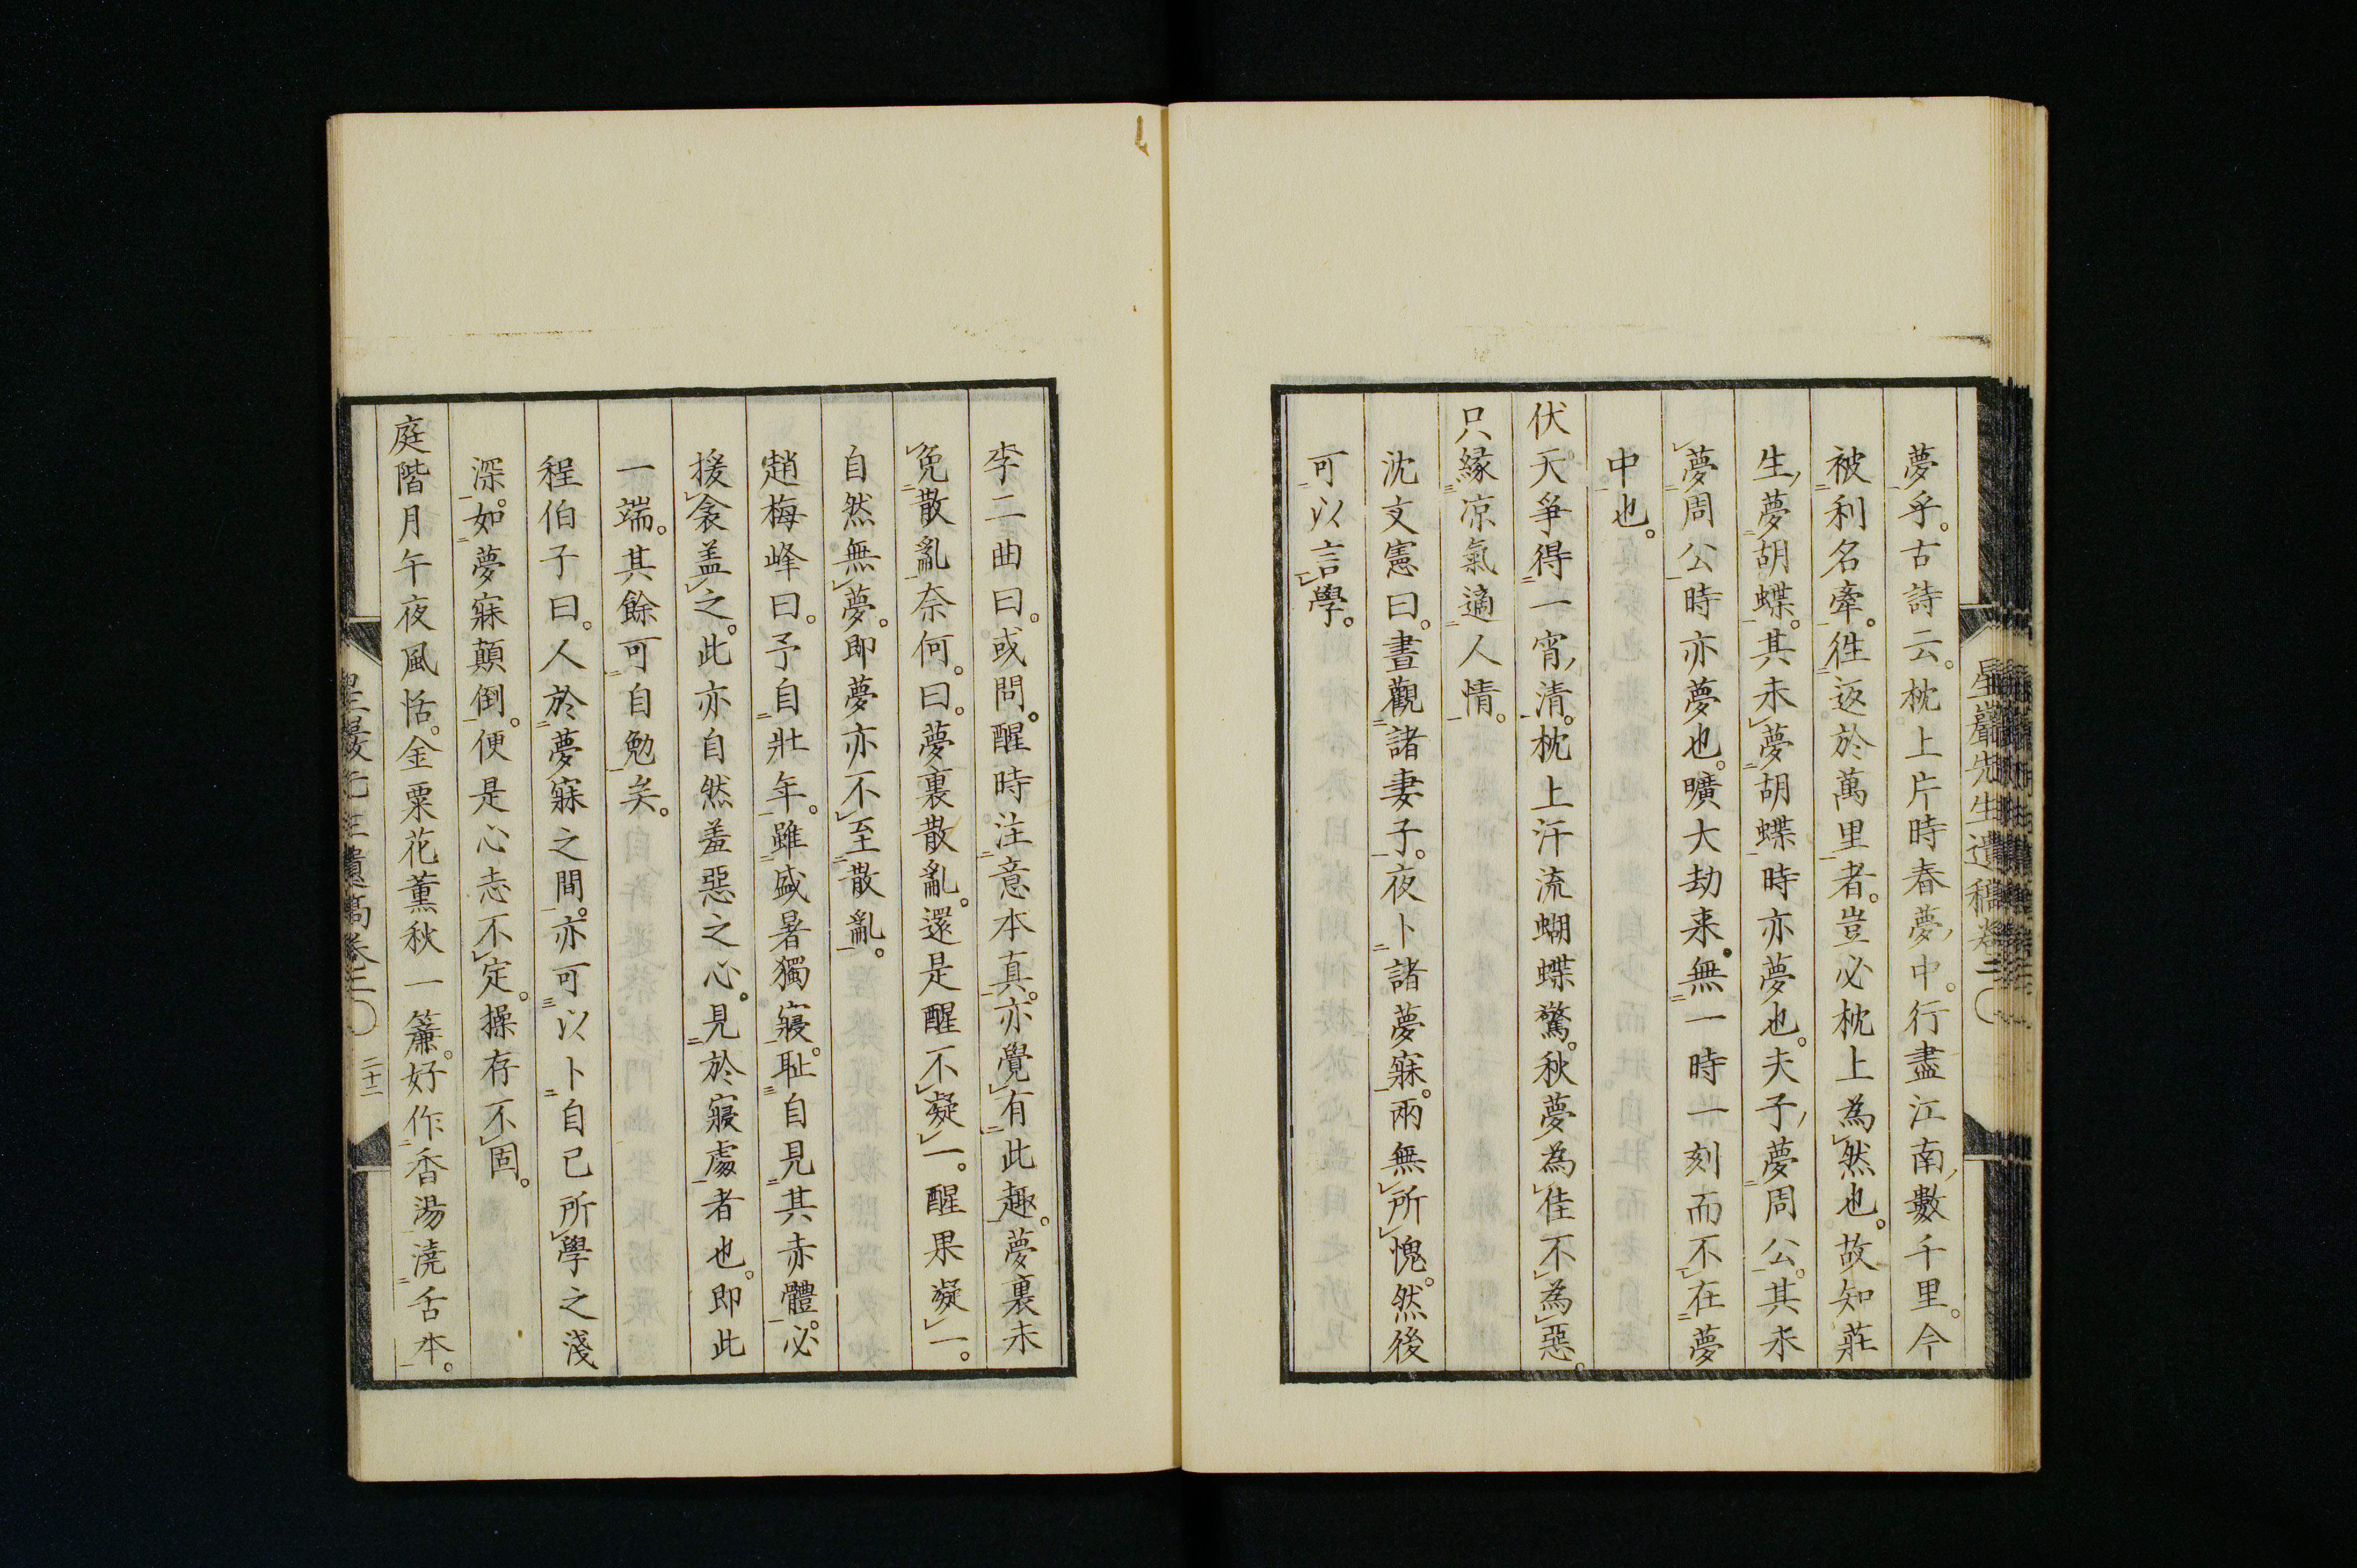 夢乎。古詩云。枕上片時春夢中。行盡江南數千里。今
被利名牽。徃返於萬里者。豈必枕上為然也。故知莊
生夢胡蝶。其未夢胡蝶時亦夢也。夫子夢周公。其未
夢周公時亦夢也。曠大劫来。無一時一刻而不在夢
中也。
伏天爭得一宵清。枕上汗流蝴蝶驚。秋夢為佳不為惡。
只緣凉氣適人情。
沈文憲曰。晝觀諸妻子。夜卜諸夢寐。兩無所愧。然後
可以言學。
星巖先生遺稿卷二
李二曲曰。或問。醒時注意本真。亦覺有此趣。夢裏未
免散亂奈何。曰。夢裏散亂。還是醒不凝一。醒果凝一。
自然無夢。即夢亦不至散亂。
趙梅峰曰。予自壯年。雖盛暑獨寢。耻自見其赤體。必
援衾盖之。此亦自然羞惡之心。見於寢處者也。即此
一端。其餘可自勉矣。
程伯子曰。人於夢寐之間。亦可以卜自己所學之淺
深。如夢寐顛倒。便是心志不定。操存不固。
庭階月午夜風恬。金粟花薰秋一簾。好作香湯澆舌本。
二十二